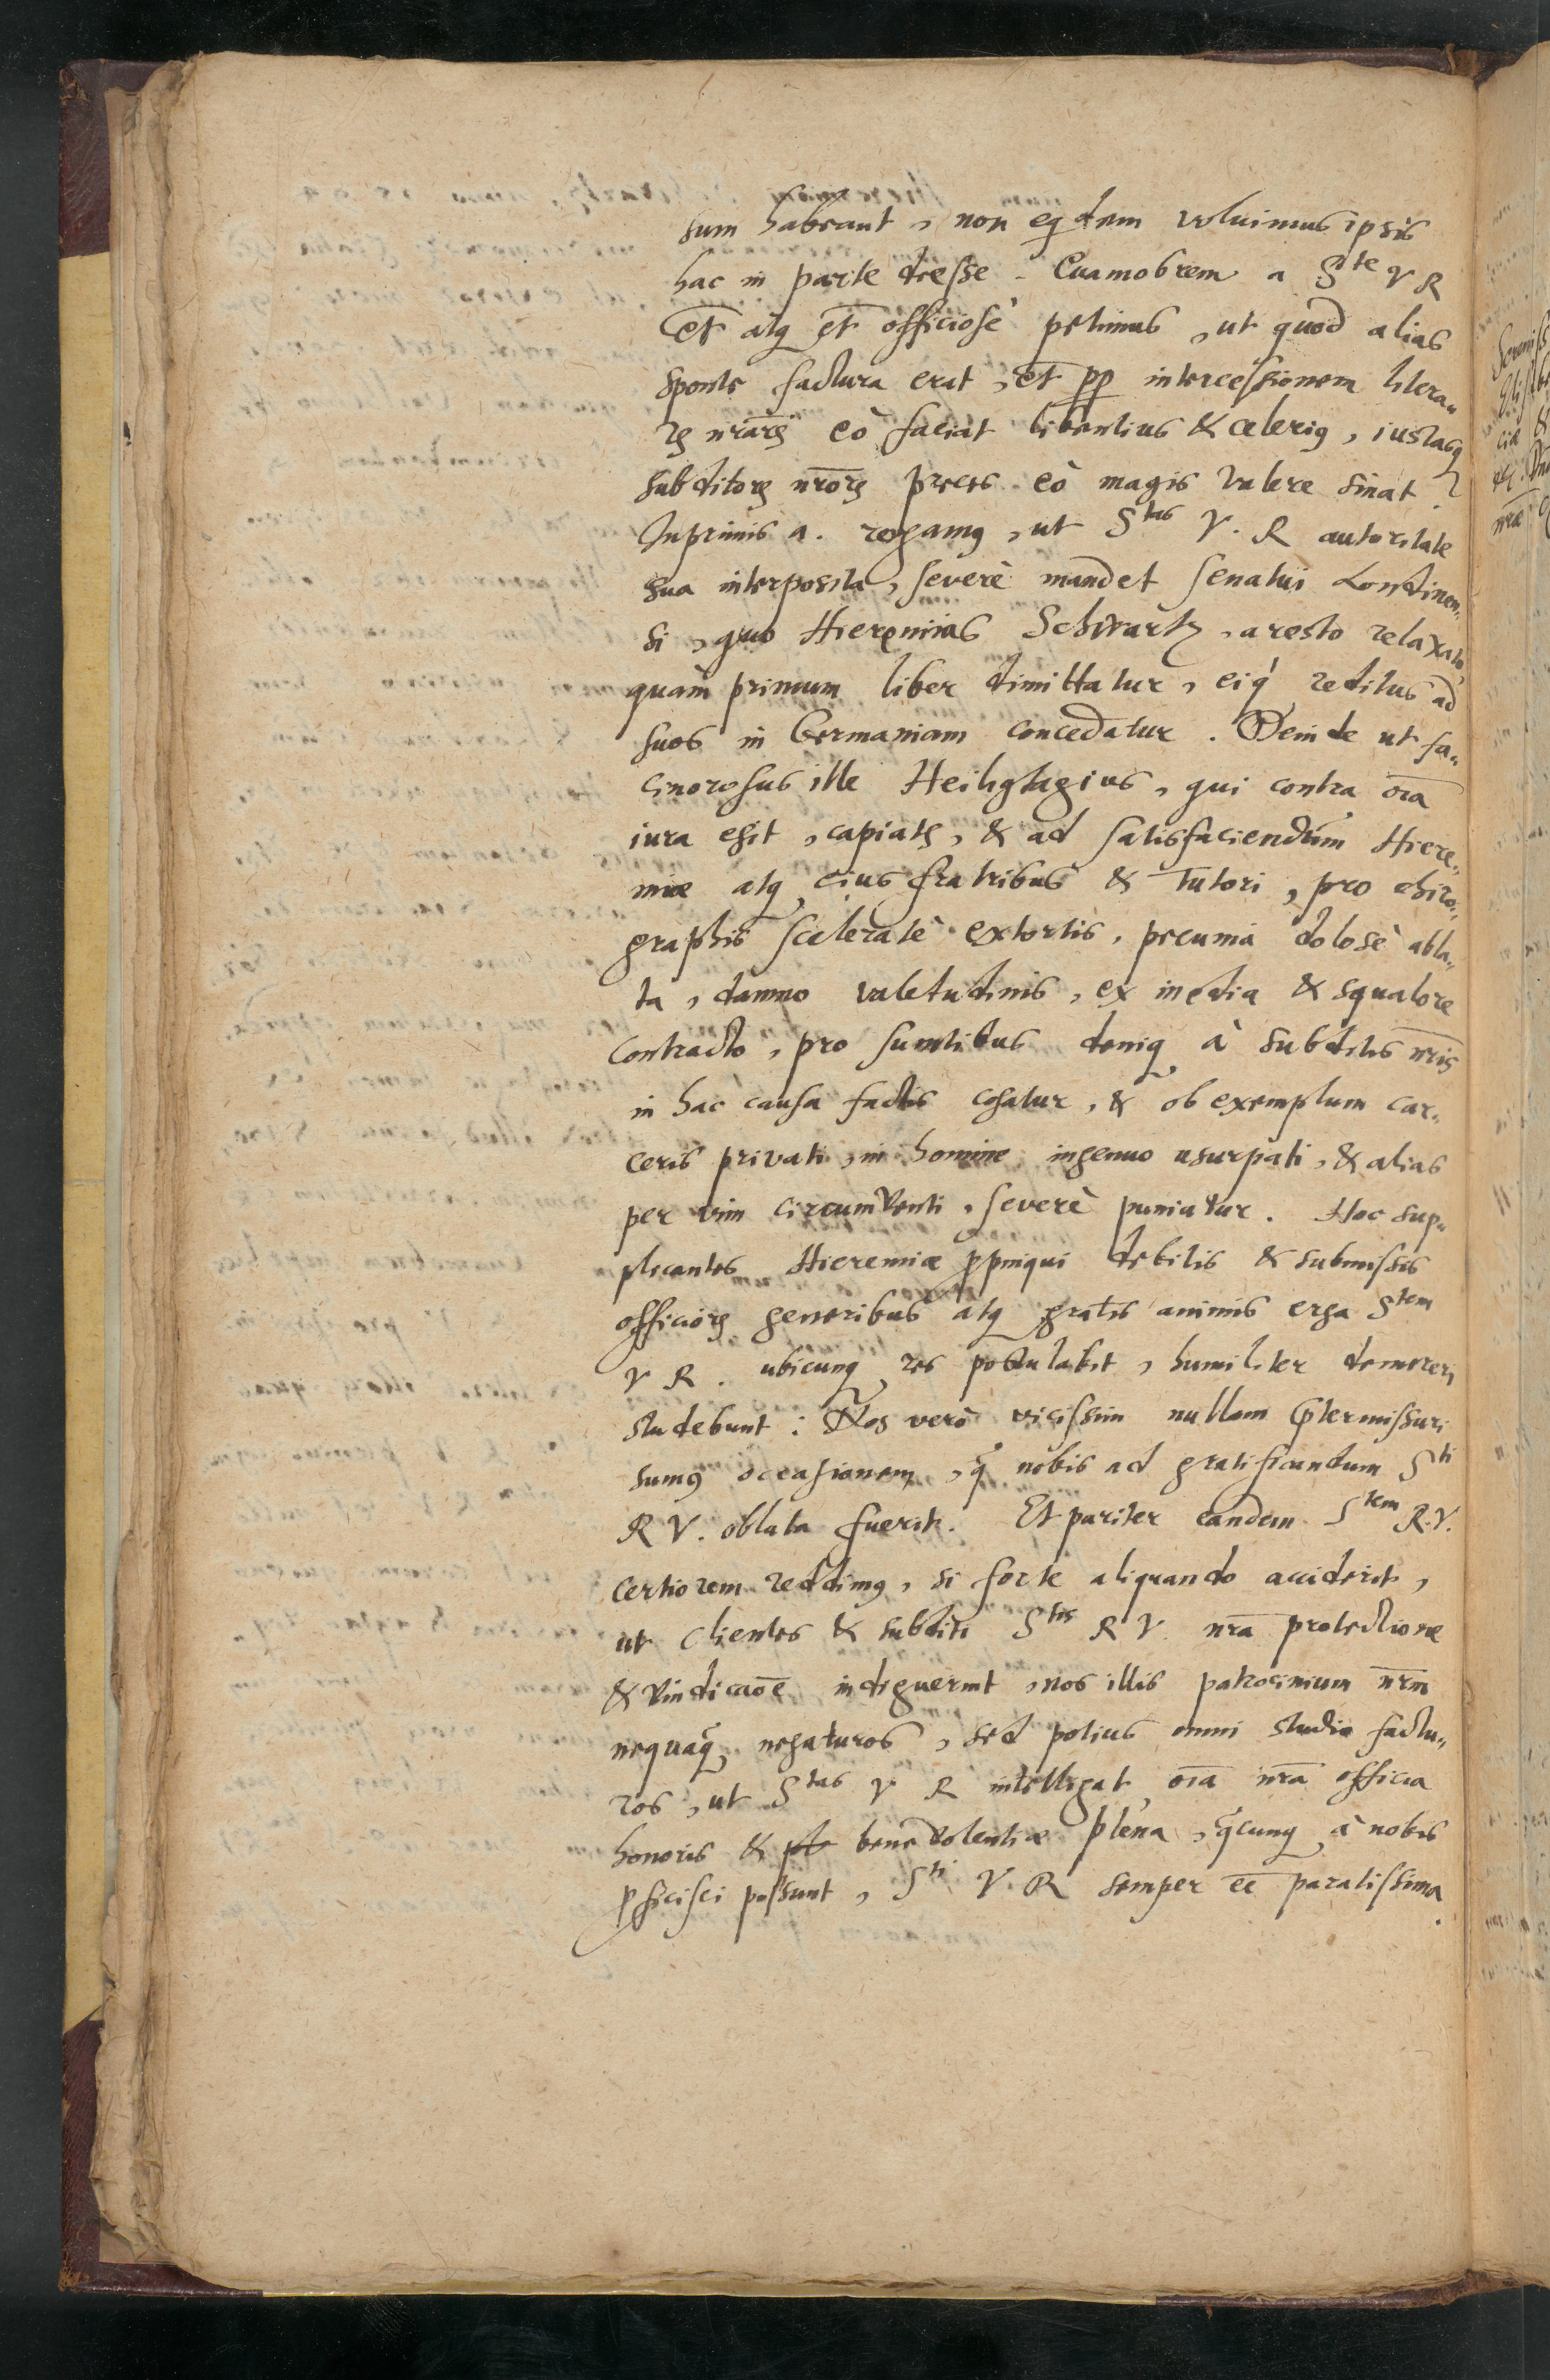 sum habeant, non eqdem voluimus ipsis
hac in parte deesse. Quamobrem a S^te V R
et atq et officiosè petimus, ut quod alias
sponte factura erat, et pp intercessionem litera„
rꝫ nr̄arꝫ eò faciat libentius & celeriꝰ, iustasq
subditorꝫ nr̄orꝫ preces eò magis valere sinat.
Inprimis a. rogamꝰ, ut S^tas V. R autoritate
sua interposita, severè mandet senatui Londinen„
si, quo Hieremias Schwartz, aresto relaxato
quam primum liber dimittatur, eiq reditus ad
suos in Germaniam concedatur. Deinde ut fa„
cinorosus ille Heiligtagius, qui contra oīa
iura egit, capiatꝫ, & ad satisfaciendum Hiere„
miæ atq eius fratribus & tutori, pro chiro„
graphis sceleratè extortis, pecunia dolosè abla„
ta, damno valetudinis, ex inedia & squalore
contracto, pro sumtibus deniq à subditis nr̄is
in hac causa factis cogatur, & ob exemplum car„
ceris privati, in homine ingenuo usurpati, & alias
per vim circumventi, severè puniatur. Hoc sup„
plicantes Hieremiæ ꝓpinqui debitis & submissis
officiorꝫ generibus atq gratis animis erga S^tem
V R. ubicunq res postulabit, humiliter demereri
studebunt: Nos verò vicissim nullam p̄termissuri
sumꝰ occasionem, q̄ nobis ad gratificandum S^ti
R V. oblata fuerit. Et pariter eandem S^tem R.V.
certiorem reddimꝰ, si forte aliquando acciderit,
ut clientes & subditi S^tis R V nr̄a protectione
& vindicaōe indiguerint, nos illis patrocinium nr̄m
nequaq̄ negaturos, sed potius omni studio factu„
ros, ut S^tas V R intelligat oīa nr̄a officia
honoris & benevolentiæ plena, q̄cunq à nobis
ꝓficisci possunt, S^ti V. R semper eē paratissima.